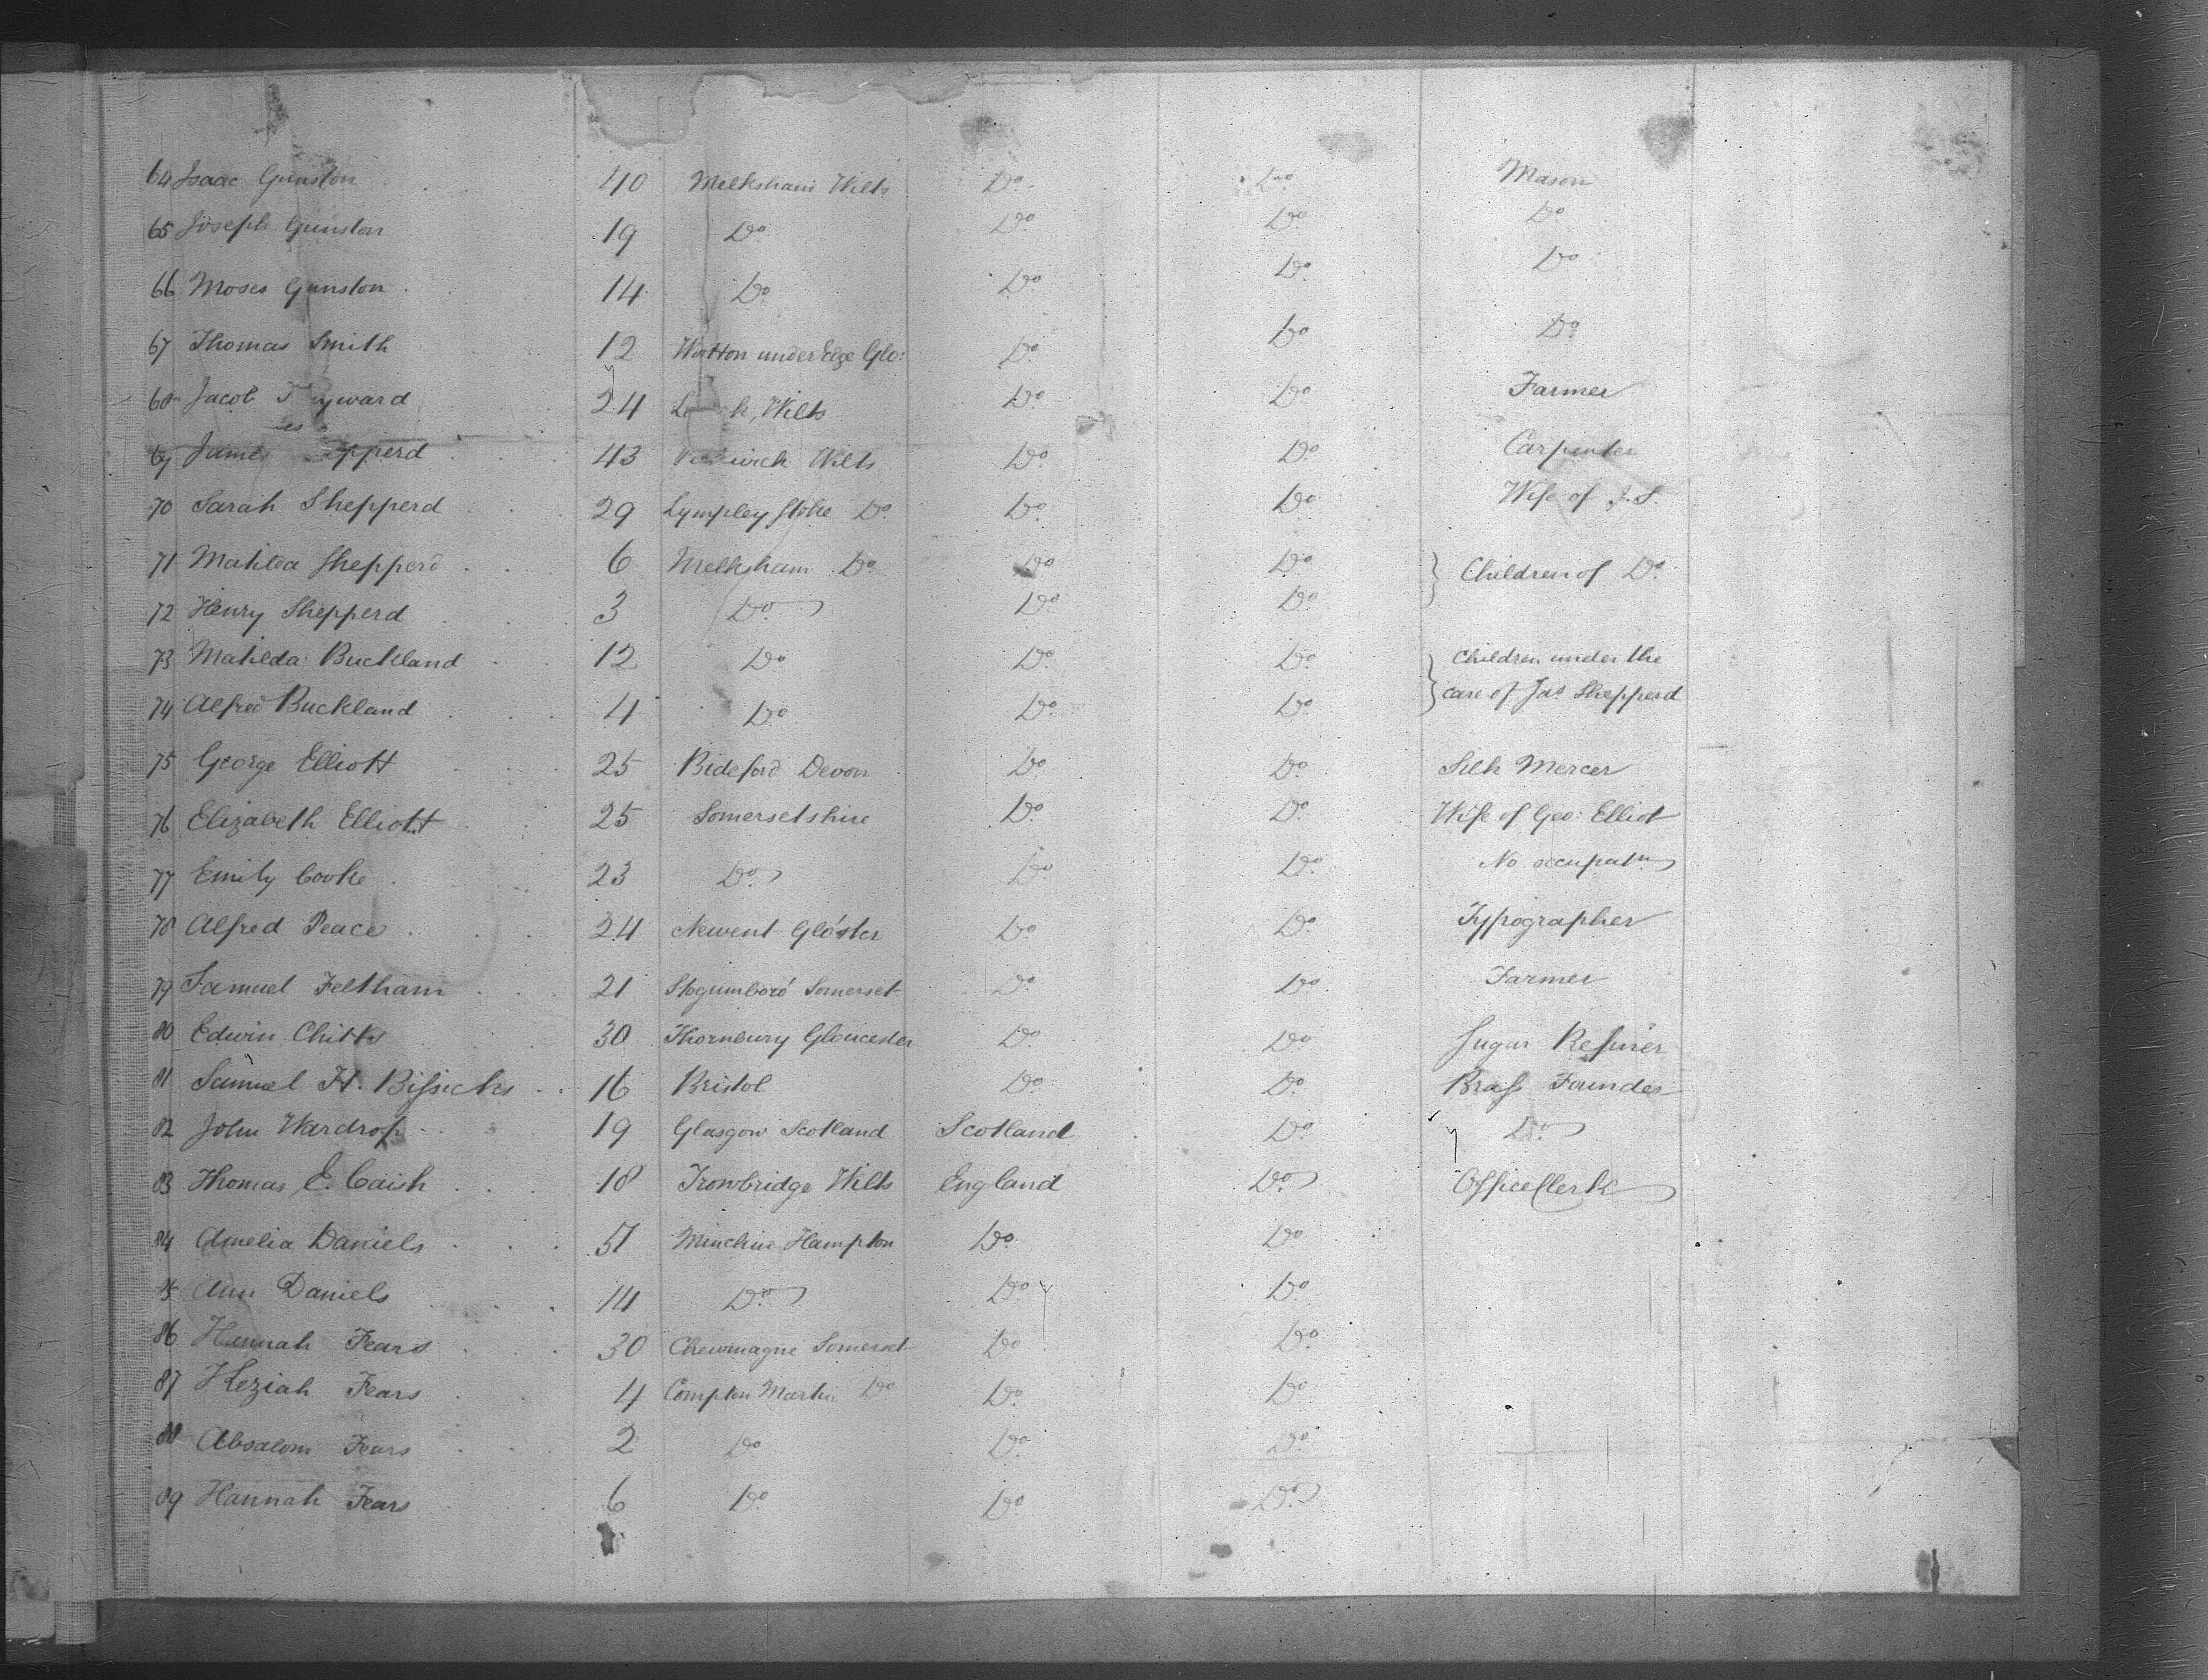 64 Isaac Gunston 40 Melksham Wilts Do. Do. Mason
65 Joseph Gunston 19 Do. Do. Do. Do.
66 Moses Gunston 14 Do. Do. Do. Do.
67 Thomas Smith 12 Wootton under Edge Glo: Do. Do. Do.
68 Jacob 24 Wilts Do. Do. Farmer
69 James 43 Wilts Do. Do. Carpenter
70 Sarah Shepperd 29 Lympley Stoke Do. Do. Do. Wife of J.S.
71 Matilda Shepperd 6 Melksham Do. Do. Do. } Children of Do.
72 Henry Shepperd 3 Do. Do. Do.
73 Matilda Buckland 12 Do. Do. Do. } Children under the
74 Alfred Buckland 4 Do. Do. Do. care of Jas. Shepperd
75 George Elliott 25 Bideford Devon Do. Do. Silk Mercer
76 Elizabeth Elliott 25 Somersetshire Do. Do. Wife of Geo: Elliot
77 Emily Cooke 23 Do. Do. Do. No occupatn
78 Alfred Peace 24 Newent Gloster Do. Do. Typographer
79 Samuel Feltham 21 Stogumboro' Somerset Do. Do. Farmer
80 Edwin Chitts 30 Thornbury Gloucester Do. Do. Sugar Refiner
81 Samuel H. Bissicks 16 Bristol Do. Do. Brass Founder
82 John Wardrop 19 Glasgow Scotland Scotland Do. Do.
83 Thomas E. Caish 18 Trowbridge Wilts England Do. Office Clerk
84 Amelia Daniels 51 Minchin Hampton Do. Do.
85 Ann Daniels 14 Do. Do. Do.
86 Hannah Fears 30 Chewmagne Somerset Do. Do.
87 Keziah Fears 4 Compton Martin Do. Do. Do.
88 Absalom Fears 2 Do. Do. Do.
89 Hannah Fears 6 Do. Do. Do.